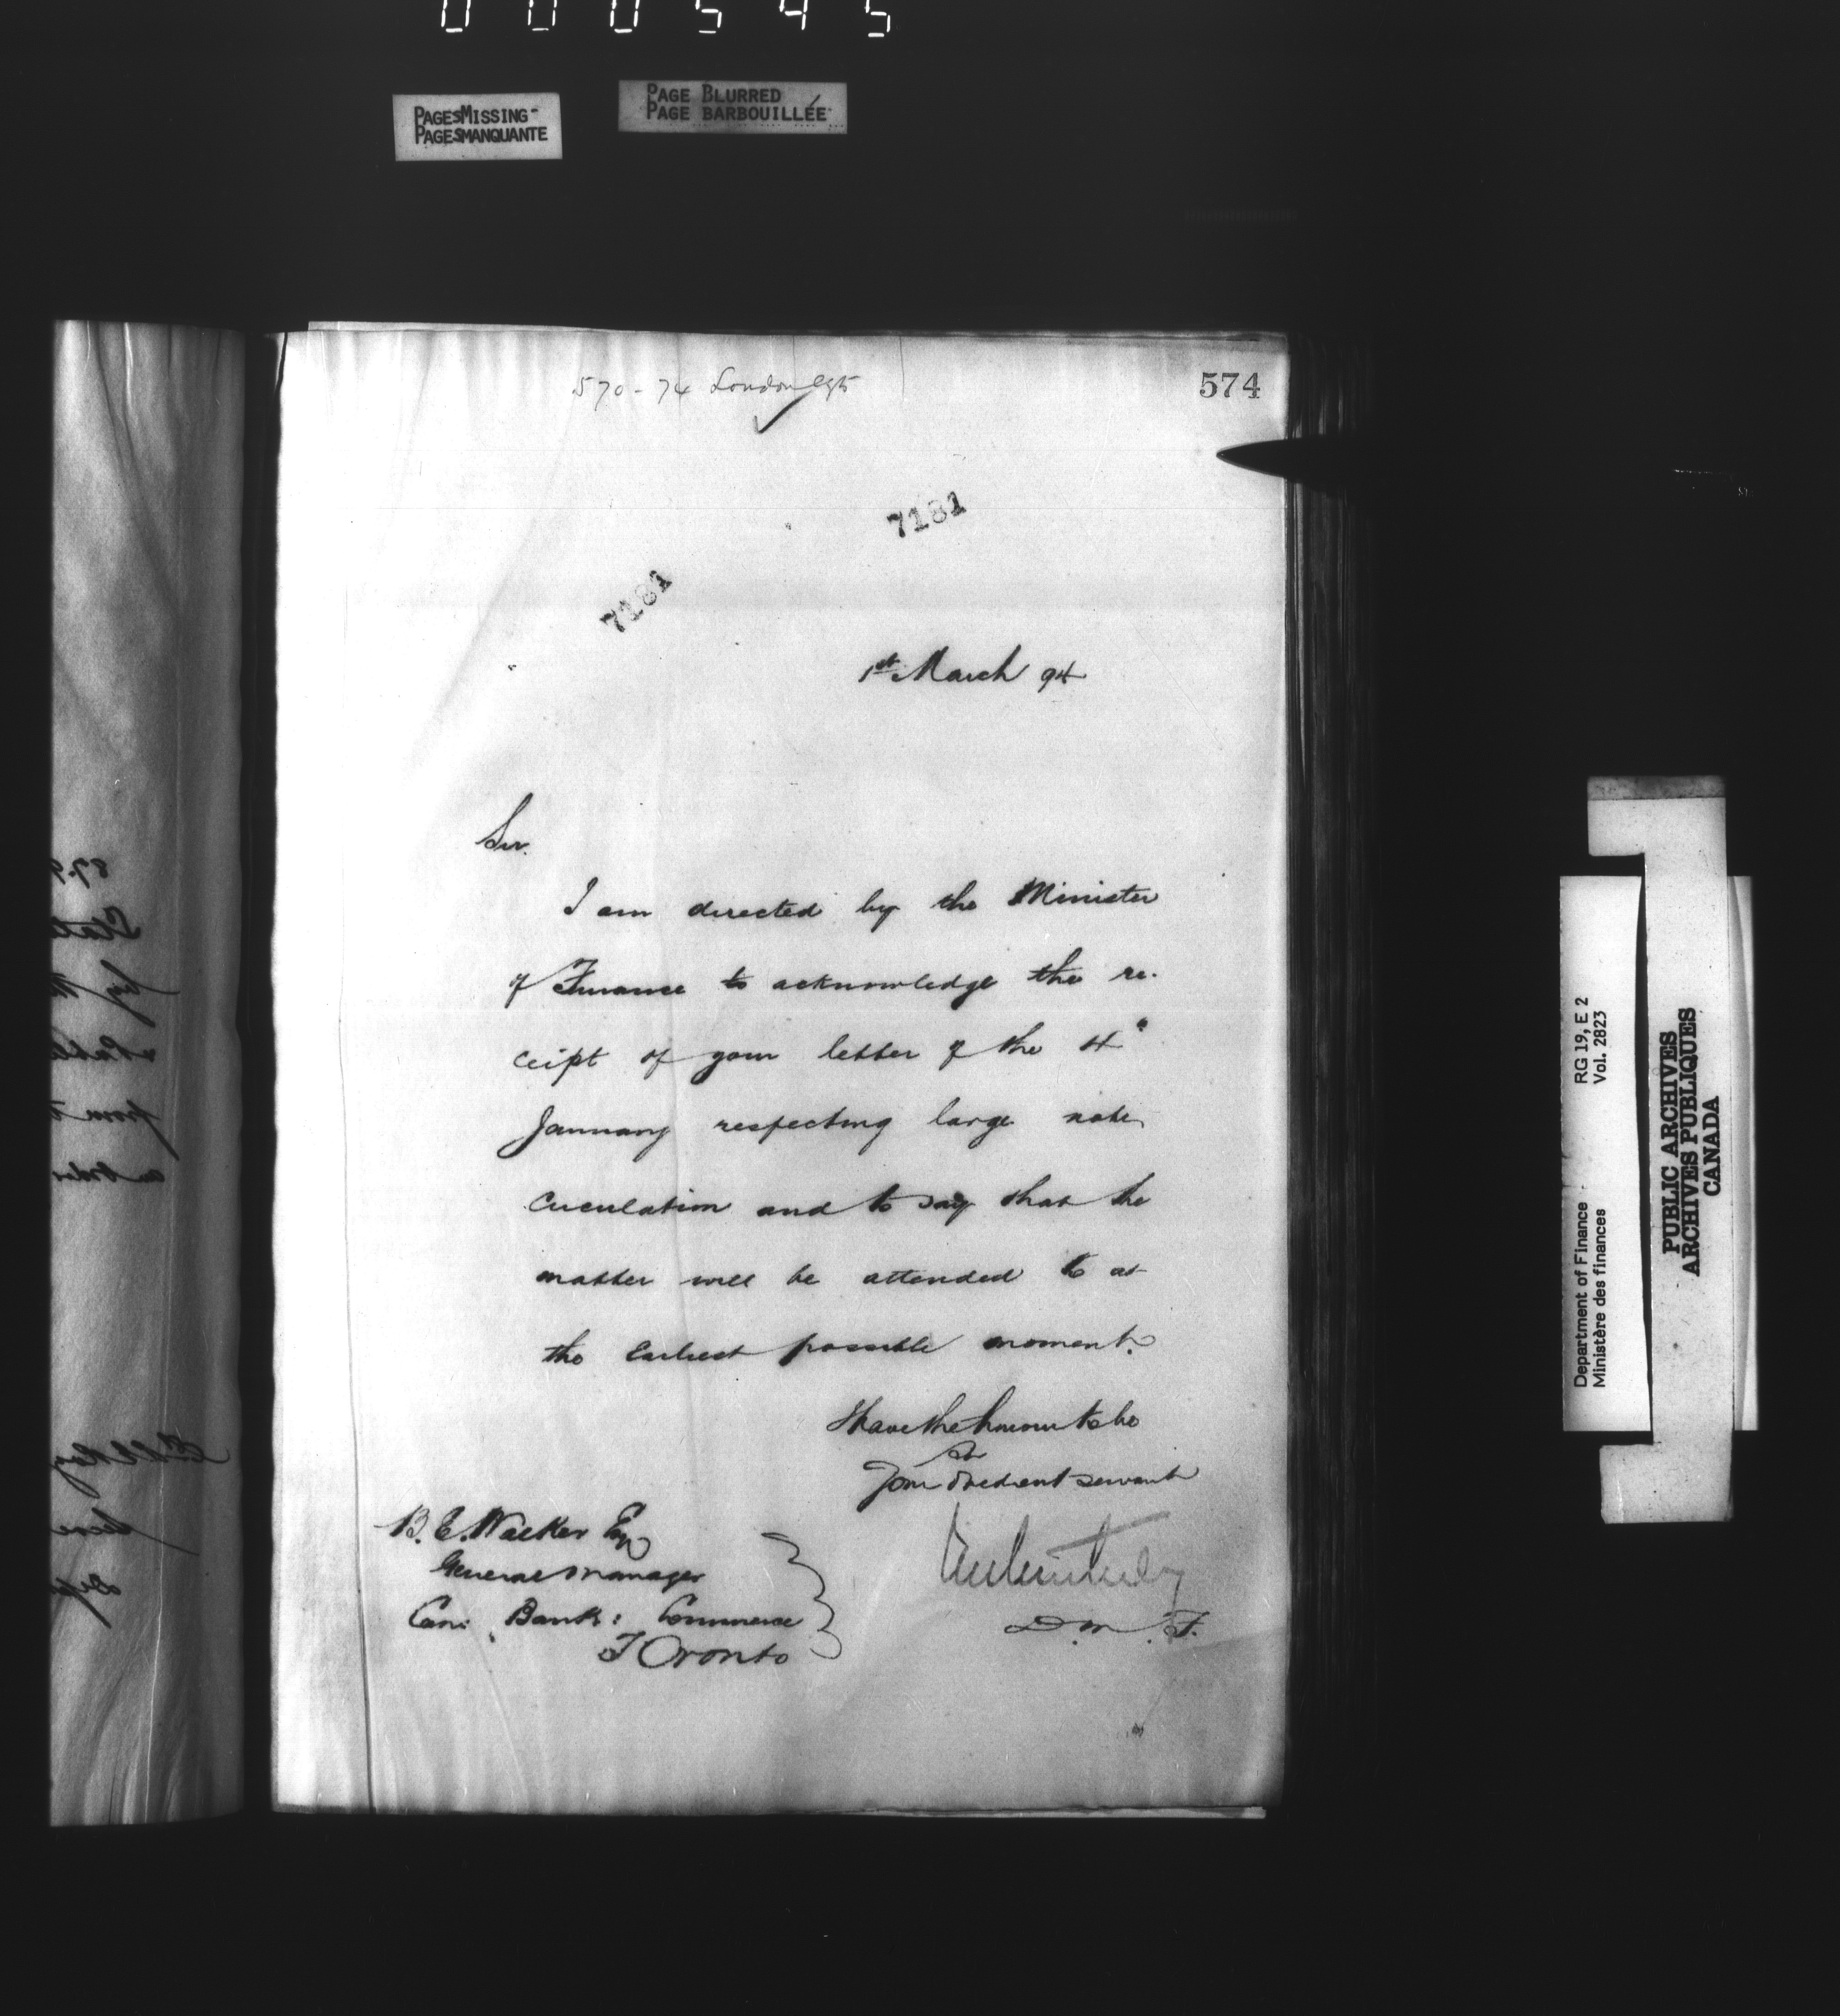 000545
PAGES MISSING
PAGES MANQUANTE
PAGE BLURRED
PAGE BARBOUILLÉE
570-74 London
574
7181
7181
1st March 94
Sir.
I am directed by the Minister
of Finance to acknowledge the re-
ceipt of your letter of the 4"
January respecting large note
circulation and to say that the
matter will be attended to at
the earliest possible moment.
I have the honour to be
Sir
Your obedient servant
D.M.F.
B. E. Walker Esq
General Manager
Can: Bank: Commerce
Toronto
Department of Finance
Ministère des finances
RG 19, E 2
Vol. 2823
PUBLIC ARCHIVES
ARCHIVES PUBLIQUES
CANADA